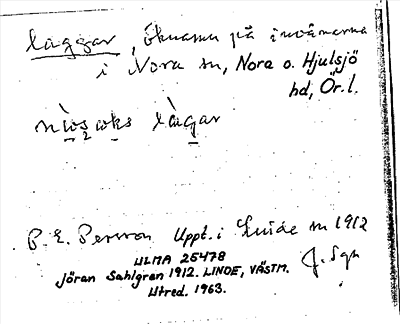 laggar, öknamn på invånarna
i Nora sn, Nora o. Hjulsjö
hd, Ör.l.
làgar
P. E. Persson Uppt. i Linde sn 1912
ULMA 25478
Jöran Sahlgren 1912. LINDE, VÄSTM.
Utred. 1963.
J. Sgn